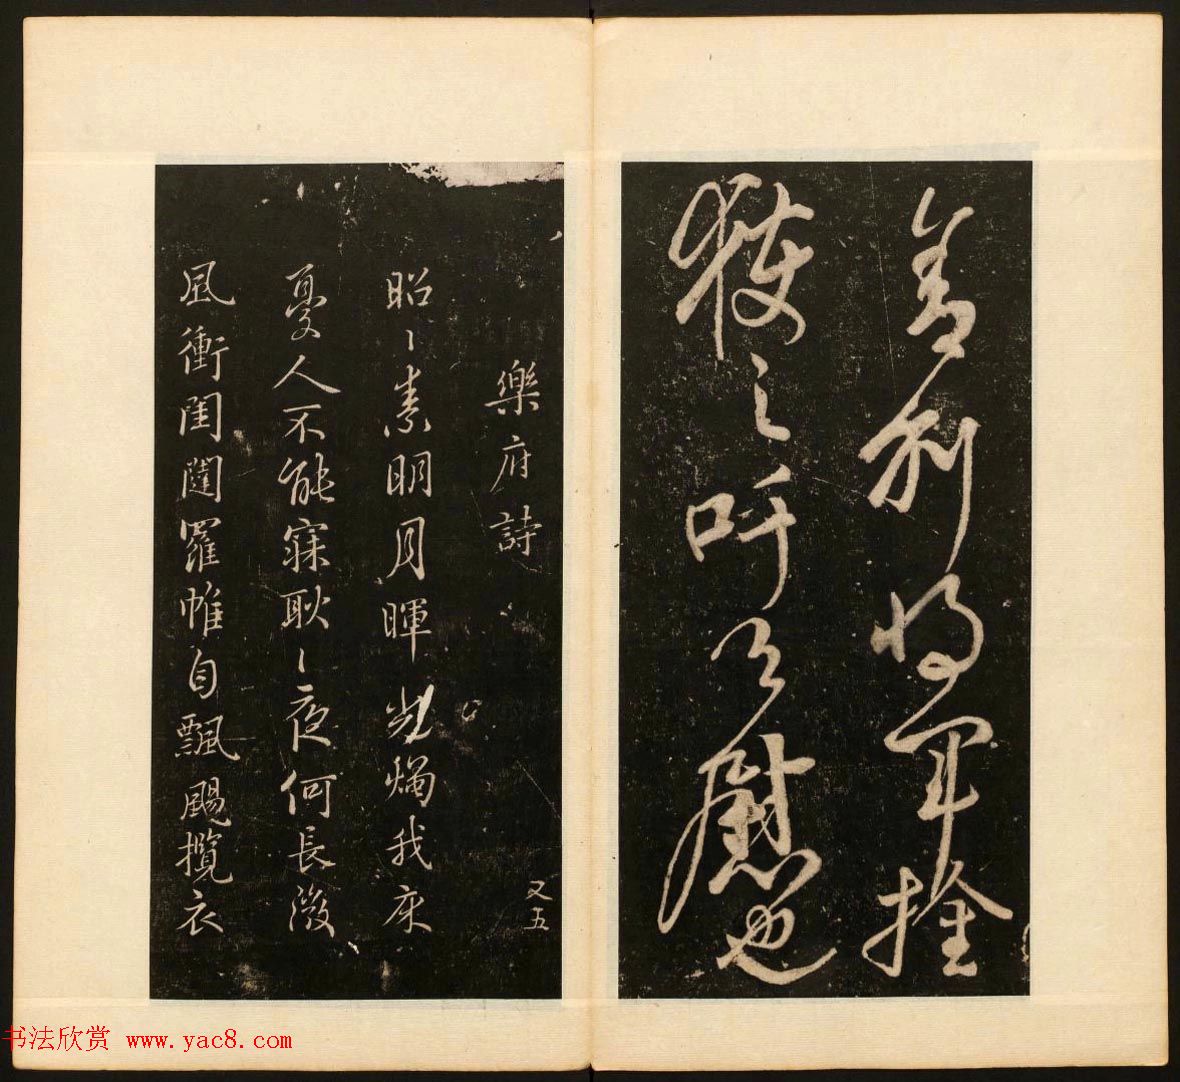 利將軍
獲之吁慰也
樂府詩
又五
昭〻素明月暉光燭我床
憂人不能寐耿〻夜何長微
風衝閨闥羅帷自飄颺攬衣
书法欣赏 www.yac8.com